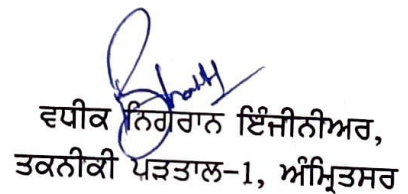 ਵਧੀਕ ਨਿਗਰਾਨ ਇੰਜੀਨੀਅਰ,
ਤਕਨੀਕੀ ਪੜਤਾਲ-1, ਅੰਮ੍ਰਿਤਸਰ